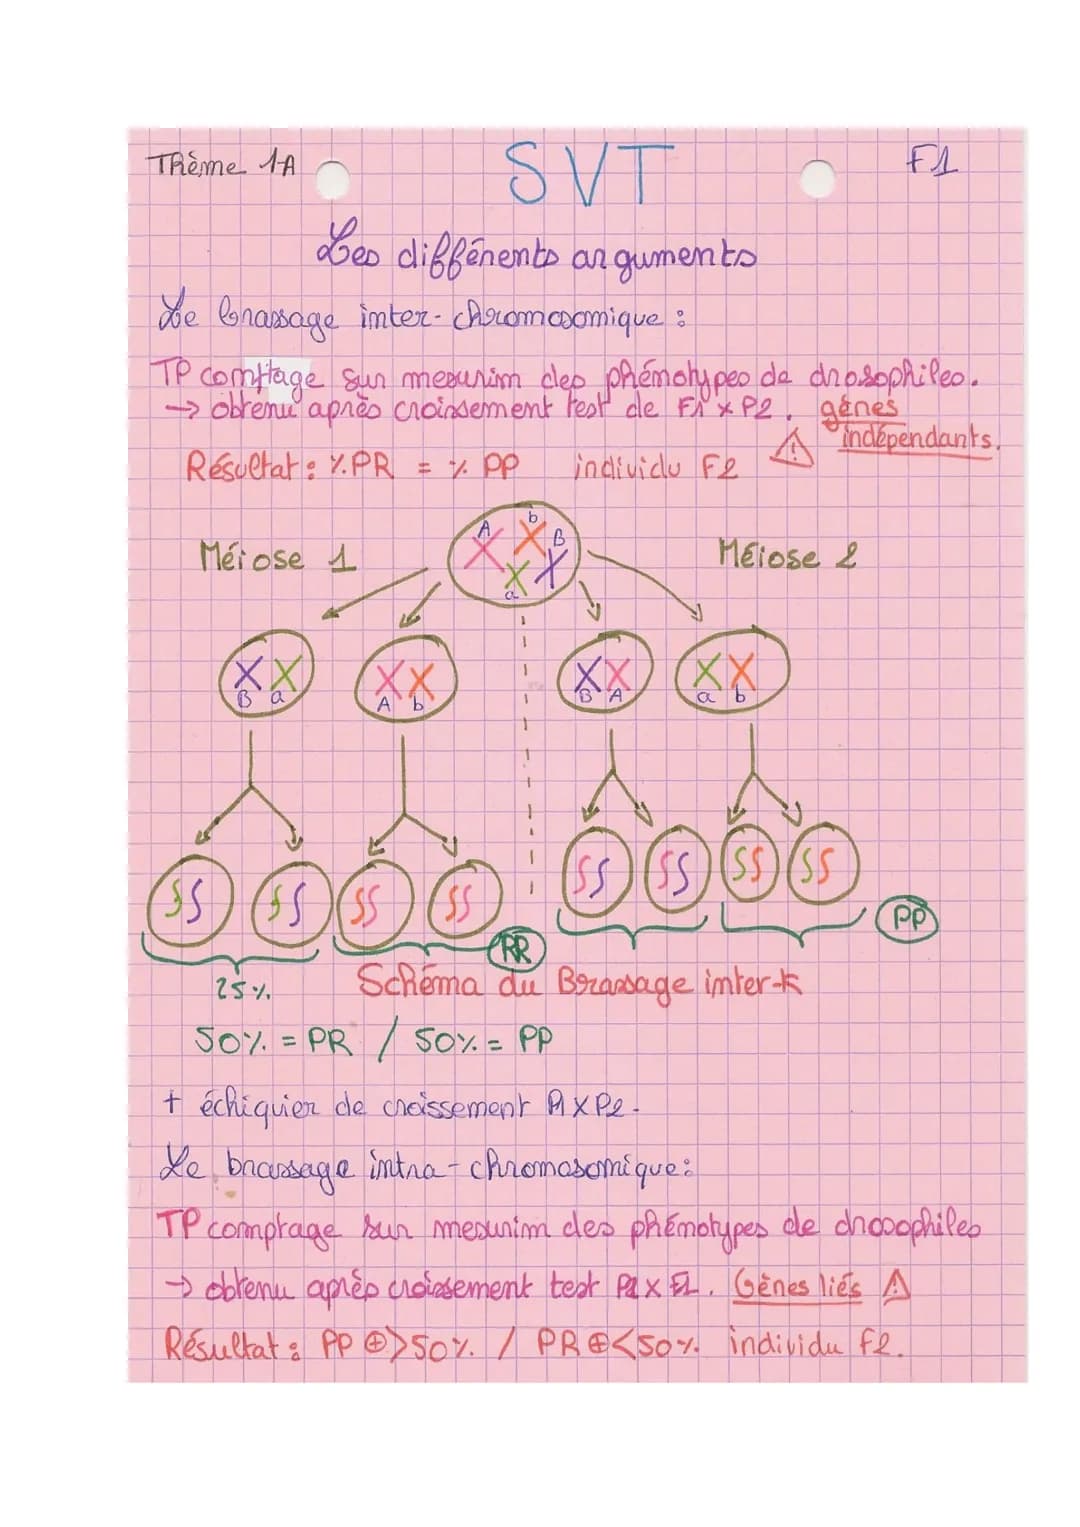 Thème 1A
SVT
F1
Les différents arguments
Le brassage inter-chromosomique :
TP comptage sur mesurim des phénotypes de drosophiles.
→ obtenu après croisement test de F1 x P2. gènes
indépendants.
Résultat : % PR = % PP individu F2
Méiose 1
Méiose 2
A b B a
B a
A b
B A
a b
RR
PP
25%
Schéma du Brassage inter-k
50% = PR / 50% = PP
+ échiquier de croissement x P2.
Le brassage intra-chromosomique :
TP comptage sur mesurim des phénotypes de drosophiles
→ obtenu après croissement test x. Gènes liés
Résultat : PP ⊕ > 50% / PR ⊕ < 50% individu F2.